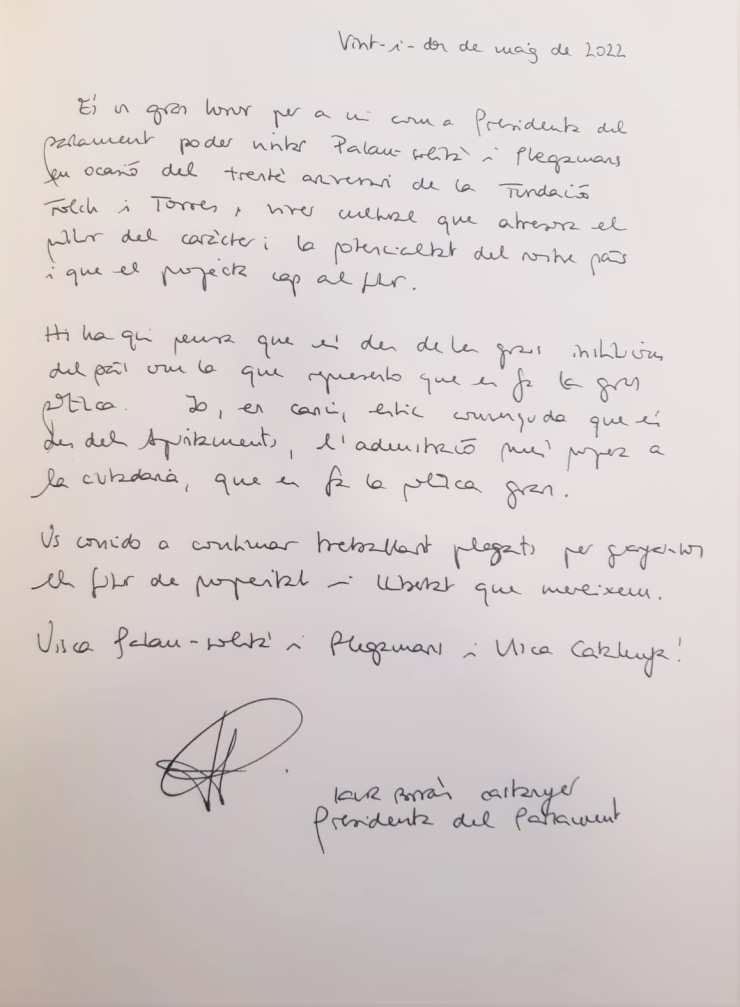 Vint-i-dos de maig de 2022
És un gran honor per a mi com a Presidenta del
parlament poder visitar Palau-solità i Plegamans
en ocasió del trentè aniversari de la Fundació
Folch i Torres, viver cultural que atresora el
millor del caràcter i la potencialitat del nostre país
i que el projecta cap al futur.
Hi ha qui pensa que és des de les grans institucions
del país com la que represento que es fa la gran
política. Jo, en canvi, estic convençuda que és
des dels Ajuntaments, l'administració més propera a
la ciutadania, que es fa la política gran.
Us convido a continuar treballant plegats per guanyar-nos
el futur de prosperitat i llibertat que mereixem.
Visca Palau-solità i Plegamans i Visca Catalunya!
Laura Borràs Castanyer
Presidenta del Parlament